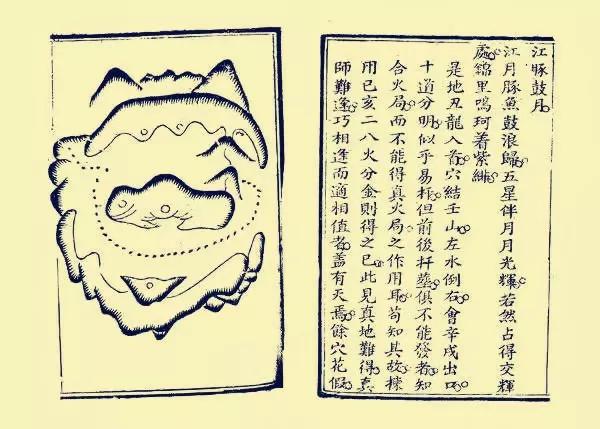 江豚鼓月
江月豚魚鼓浪歸五星伴月月光輝若然占得交輝
處錦里鳴珂着紫緋
是地丑龍入首穴結壬山左水倒右會辛戌出口
十道分明似乎易扦但前後扦塟俱不能發者知
合火局而不能得真火局之作用耳苟知其故揀
用巳亥二八火分金則得之巳此見真地難得真
師難逢巧相逢而適相值者蓋有天焉餘穴花假